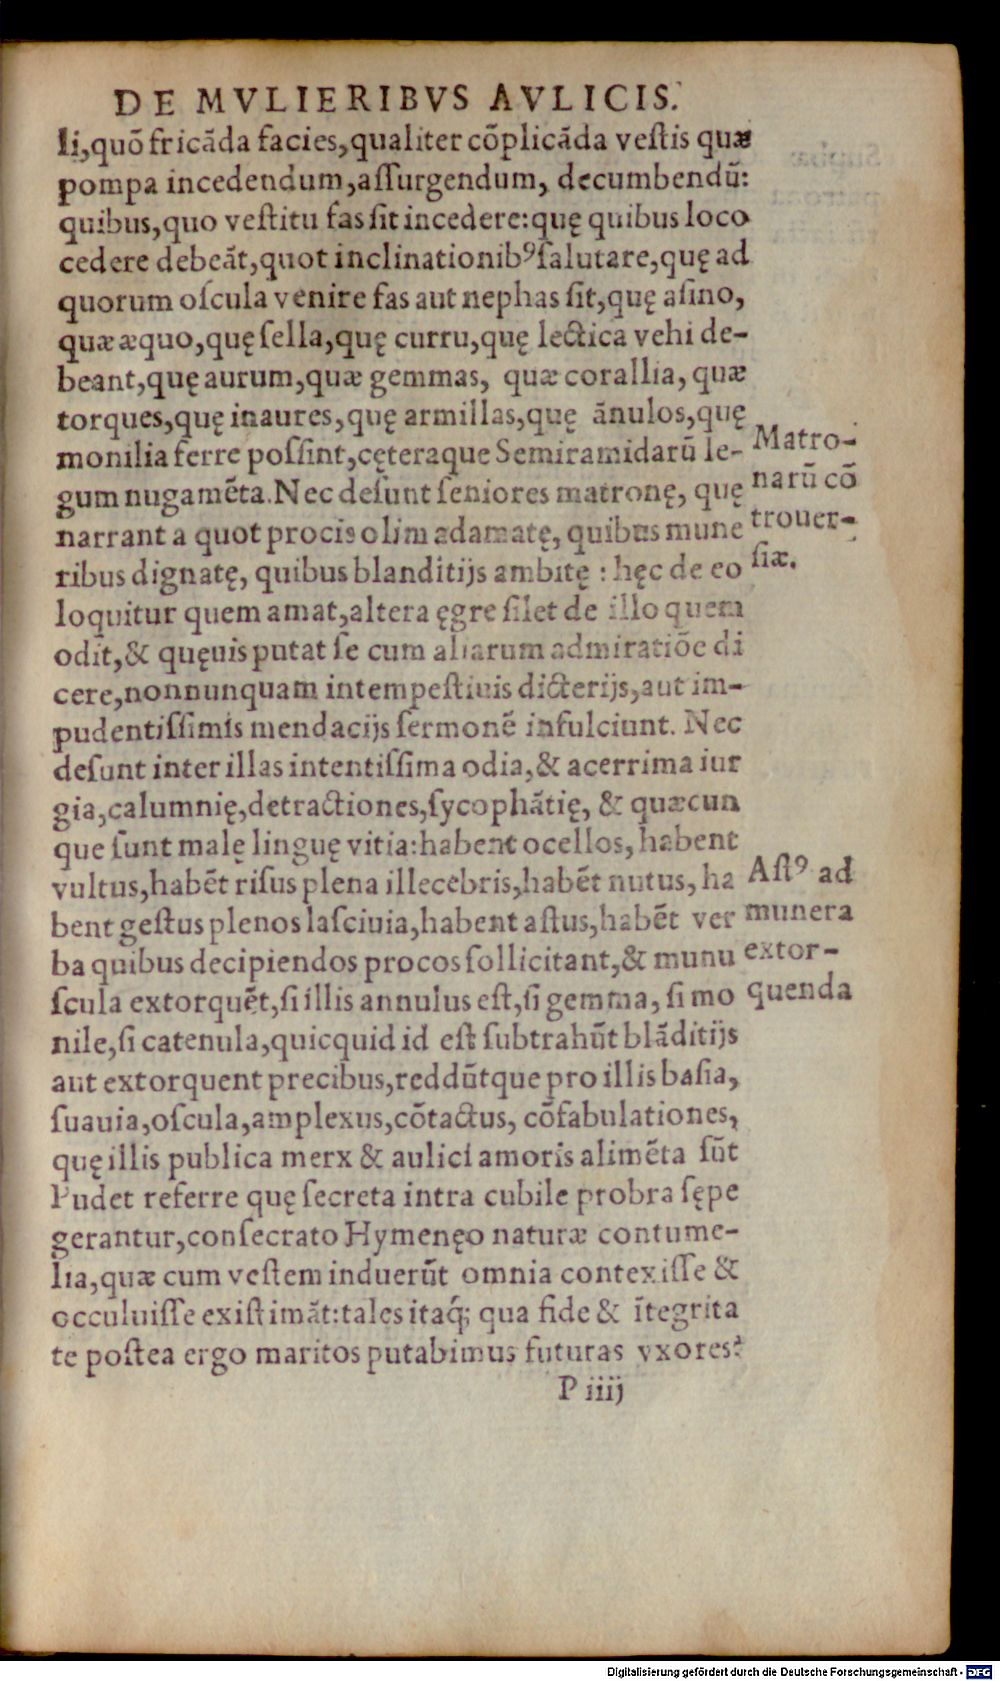 DE MVLIERIBVS AVLICIS.
li,quõ fricãda facies,qualiter cõplicãda veſtis quæ
pompa incedendum,aſſurgendum, decumbendũ:
quibus,quo veſtitu fas ſit incedere:quę quibus loco
cedere debeãt,quot inclinationibꝰ ſalutare,quę ad
quorum oſcula venire fas aut nephas ſit,quę aſino,
quæ æquo,quę ſella,quę curru,quę lectica vehi de-
beant,quę aurum,quæ gemmas, quæ corallia, quæ
torques,quę inaures,quę armillas,quę ãnulos,quę
monilia ferre poſſint,cęteraque Semiramidarũ le-
gum nugamẽta.Nec deſunt ſeniores matronę, quę
narrant a quot procis olim adamatę, quibus mune
ribus dignatę, quibus blanditijs ambitę : hęc de eo
loquitur quem amat,altera ęgre ſilet de illo quem
odit,& quęuis putat ſe cum aliarum admiratiõe di
cere,nonnunquam intempeſtiuis dicterijs,aut im-
pudentiſſimis mendacijs ſermonẽ infulciunt. Nec
deſunt inter illas intentiſſima odia,& acerrima iur
gia,calumnię,detractiones,ſycophãtię, & quæcun
que ſunt malę linguę vitia:habent ocellos, habent
vultus,habẽt riſus plena illecebris,habẽt nutus, ha
bent geſtus plenos laſciuia,habent aſtus,habẽt ver
ba quibus decipiendos procos ſollicitant,& munu
ſcula extorquẽt,ſi illis annulus eſt,ſi gemma, ſi mo
nile,ſi catenula,quicquid id eſt ſubtrahũt blãditijs
aut extorquent precibus,reddũtque pro illis baſia,
ſuauia,oſcula,amplexus,cõtactus, cõfabulationes,
quę illis publica merx & aulici amoris alimẽta ſũt
Pudet referre quę ſecreta intra cubile probra ſępe
gerantur,conſecrato Hymenęo naturæ contume-
lia,quæ cum veſtem induerũt omnia contexiſſe &
occuluiſſe exiſtimãt:tales itaq; qua fide & ĩtegrita
te poſtea ergo maritos putabimus futuras vxores?
P iiij
Matro-
narũ cõ
trouer-
ſiæ.
Aſtꝰ ad
munera
extor-
quenda
Digitalisierung gefördert durch die Deutsche Forschungsgemeinschaft - DFG